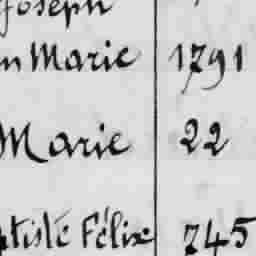 Joseph
n Marie 1791
Marie 22
ptiste Félix 745